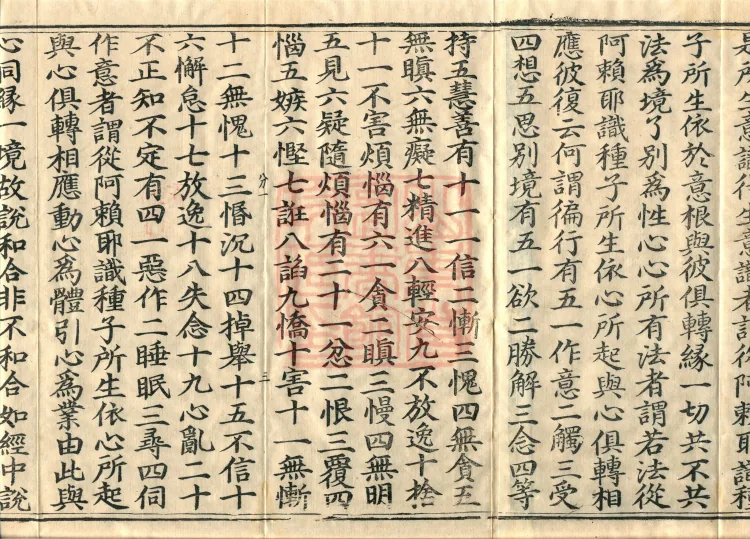 意識者謂從阿賴耶識種
子所生依於意根與彼俱轉緣一切共不共
法爲境了別爲性心心所有法者謂若法從
阿賴耶識種子所生依心所起與心俱轉相
應彼復云何謂徧行有五一作意二觸三受
四想五思別境有五一欲二勝解三念四等
持五慧善有十一一信二慚三愧四無貪五
無瞋六無癡七精進八輕安九不放逸十捨
十一不害煩惱有六一貪二瞋三慢四無明
五見六疑隨煩惱有二十一忿二恨三覆四
惱五嫉六慳七誑八諂九憍十害十一無慚
分一 三
十二無愧十三惛沉十四掉舉十五不信十
六懈怠十七放逸十八失念十九心亂二十
不正知不定有四一惡作二睡眠三尋四伺
作意者謂從阿賴耶識種子所生依心所起
與心俱轉相應動心爲體引心爲業由此與
心同緣一境故說和合非不和合如經中說